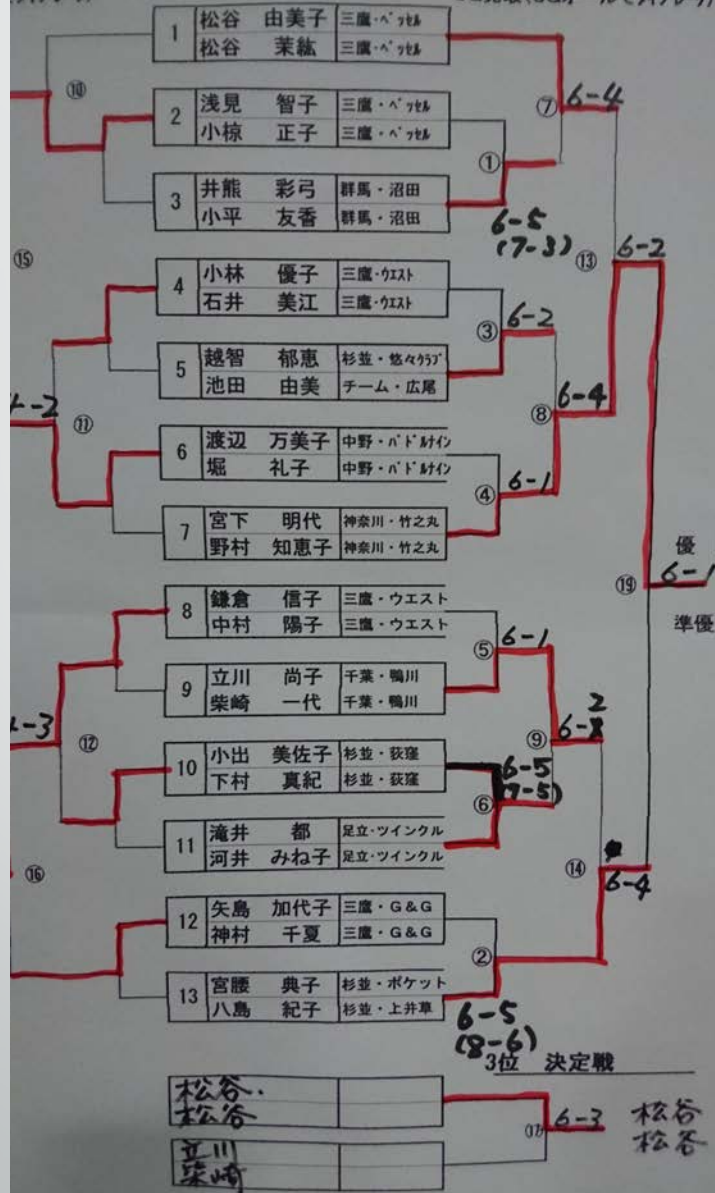 1 松谷 由美子 三鷹・ベッセル
松谷 茉紘 三鷹・ベッセル
⑩
⑦ 6-4
2 浅見 智子 三鷹・ベッセル
小椋 正子 三鷹・ベッセル
①
3 井熊 彩弓 群馬・沼田
小平 友香 群馬・沼田
6-5
(7-3)
⑮
⑬ 6-2
4 小林 優子 三鷹・ウエスト
石井 美江 三鷹・ウエスト
③ 6-2
5 越智 郁恵 杉並・悠々クラブ
池田 由美 チーム・広尾
⑪
⑧ 6-4
6 渡辺 万美子 中野・バドルナイン
堀 礼子 中野・バドルナイン
④ 6-1
7 宮下 明代 神奈川・竹之丸
野村 知恵子 神奈川・竹之丸
優
⑲ 6-1
準優
8 鎌倉 信子 三鷹・ウエスト
中村 陽子 三鷹・ウエスト
⑤ 6-1
9 立川 尚子 千葉・鴨川
柴崎 一代 千葉・鴨川
⑫
⑨ 6-2
10 小出 美佐子 杉並・荻窪
下村 真紀 杉並・荻窪
⑥ 6-5
(7-5)
11 滝井 都 足立・ツインクル
河井 みね子 足立・ツインクル
⑯
⑭ 6-4
12 矢島 加代子 三鷹・G&G
神村 千夏 三鷹・G&G
②
13 宮腰 典子 杉並・ポケット
八島 紀子 杉並・上井草
6-5
(8-6)
3位 決定戦
松谷・
松谷
6-3 松谷
松谷
立川
柴崎